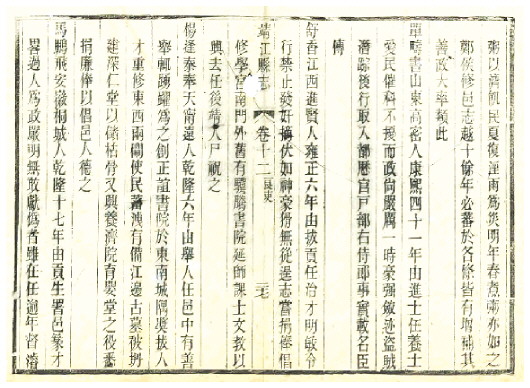 粥以濟飢民夏復淫雨爲災明年春煮粥亦如之
鄭侯修邑志越十餘年必蕃於各條皆有增補其
善政大率類此
單疇書山東高密人康熙四十一年由進士任養士
愛民催科不擾而政尚嚴厲一時豪强斂迹盜賊
潛踪後行取入部歷官戶部右侍郎事實載名臣
傳
舒香江西進賢人雍正六年由拔貢任治才明敏令
行禁止發奸擿伏如神豪猾無從逞志嘗捐俸倡
靖江縣志 卷十二 良吏
修學宮南門外舊有驥騰書院延師課士文教以
興去任後靖人尸祝之
楊逢泰奉天甯遠人乾隆六年由舉人任邑中有善
舉輒踴躍爲之創正誼書院於東南城隅奬拔人
才重修東西兩關使民蓄洩有備江邊古墓被坍
建深仁堂以儲枯骨又興養濟院育嬰堂之役悉
捐廉俸以倡邑人德之
馬鵬飛安徽桐城人乾隆十七年由貢生署邑篆才
畧過人爲政嚴明無敢獻僞者雖在任逾年督濬